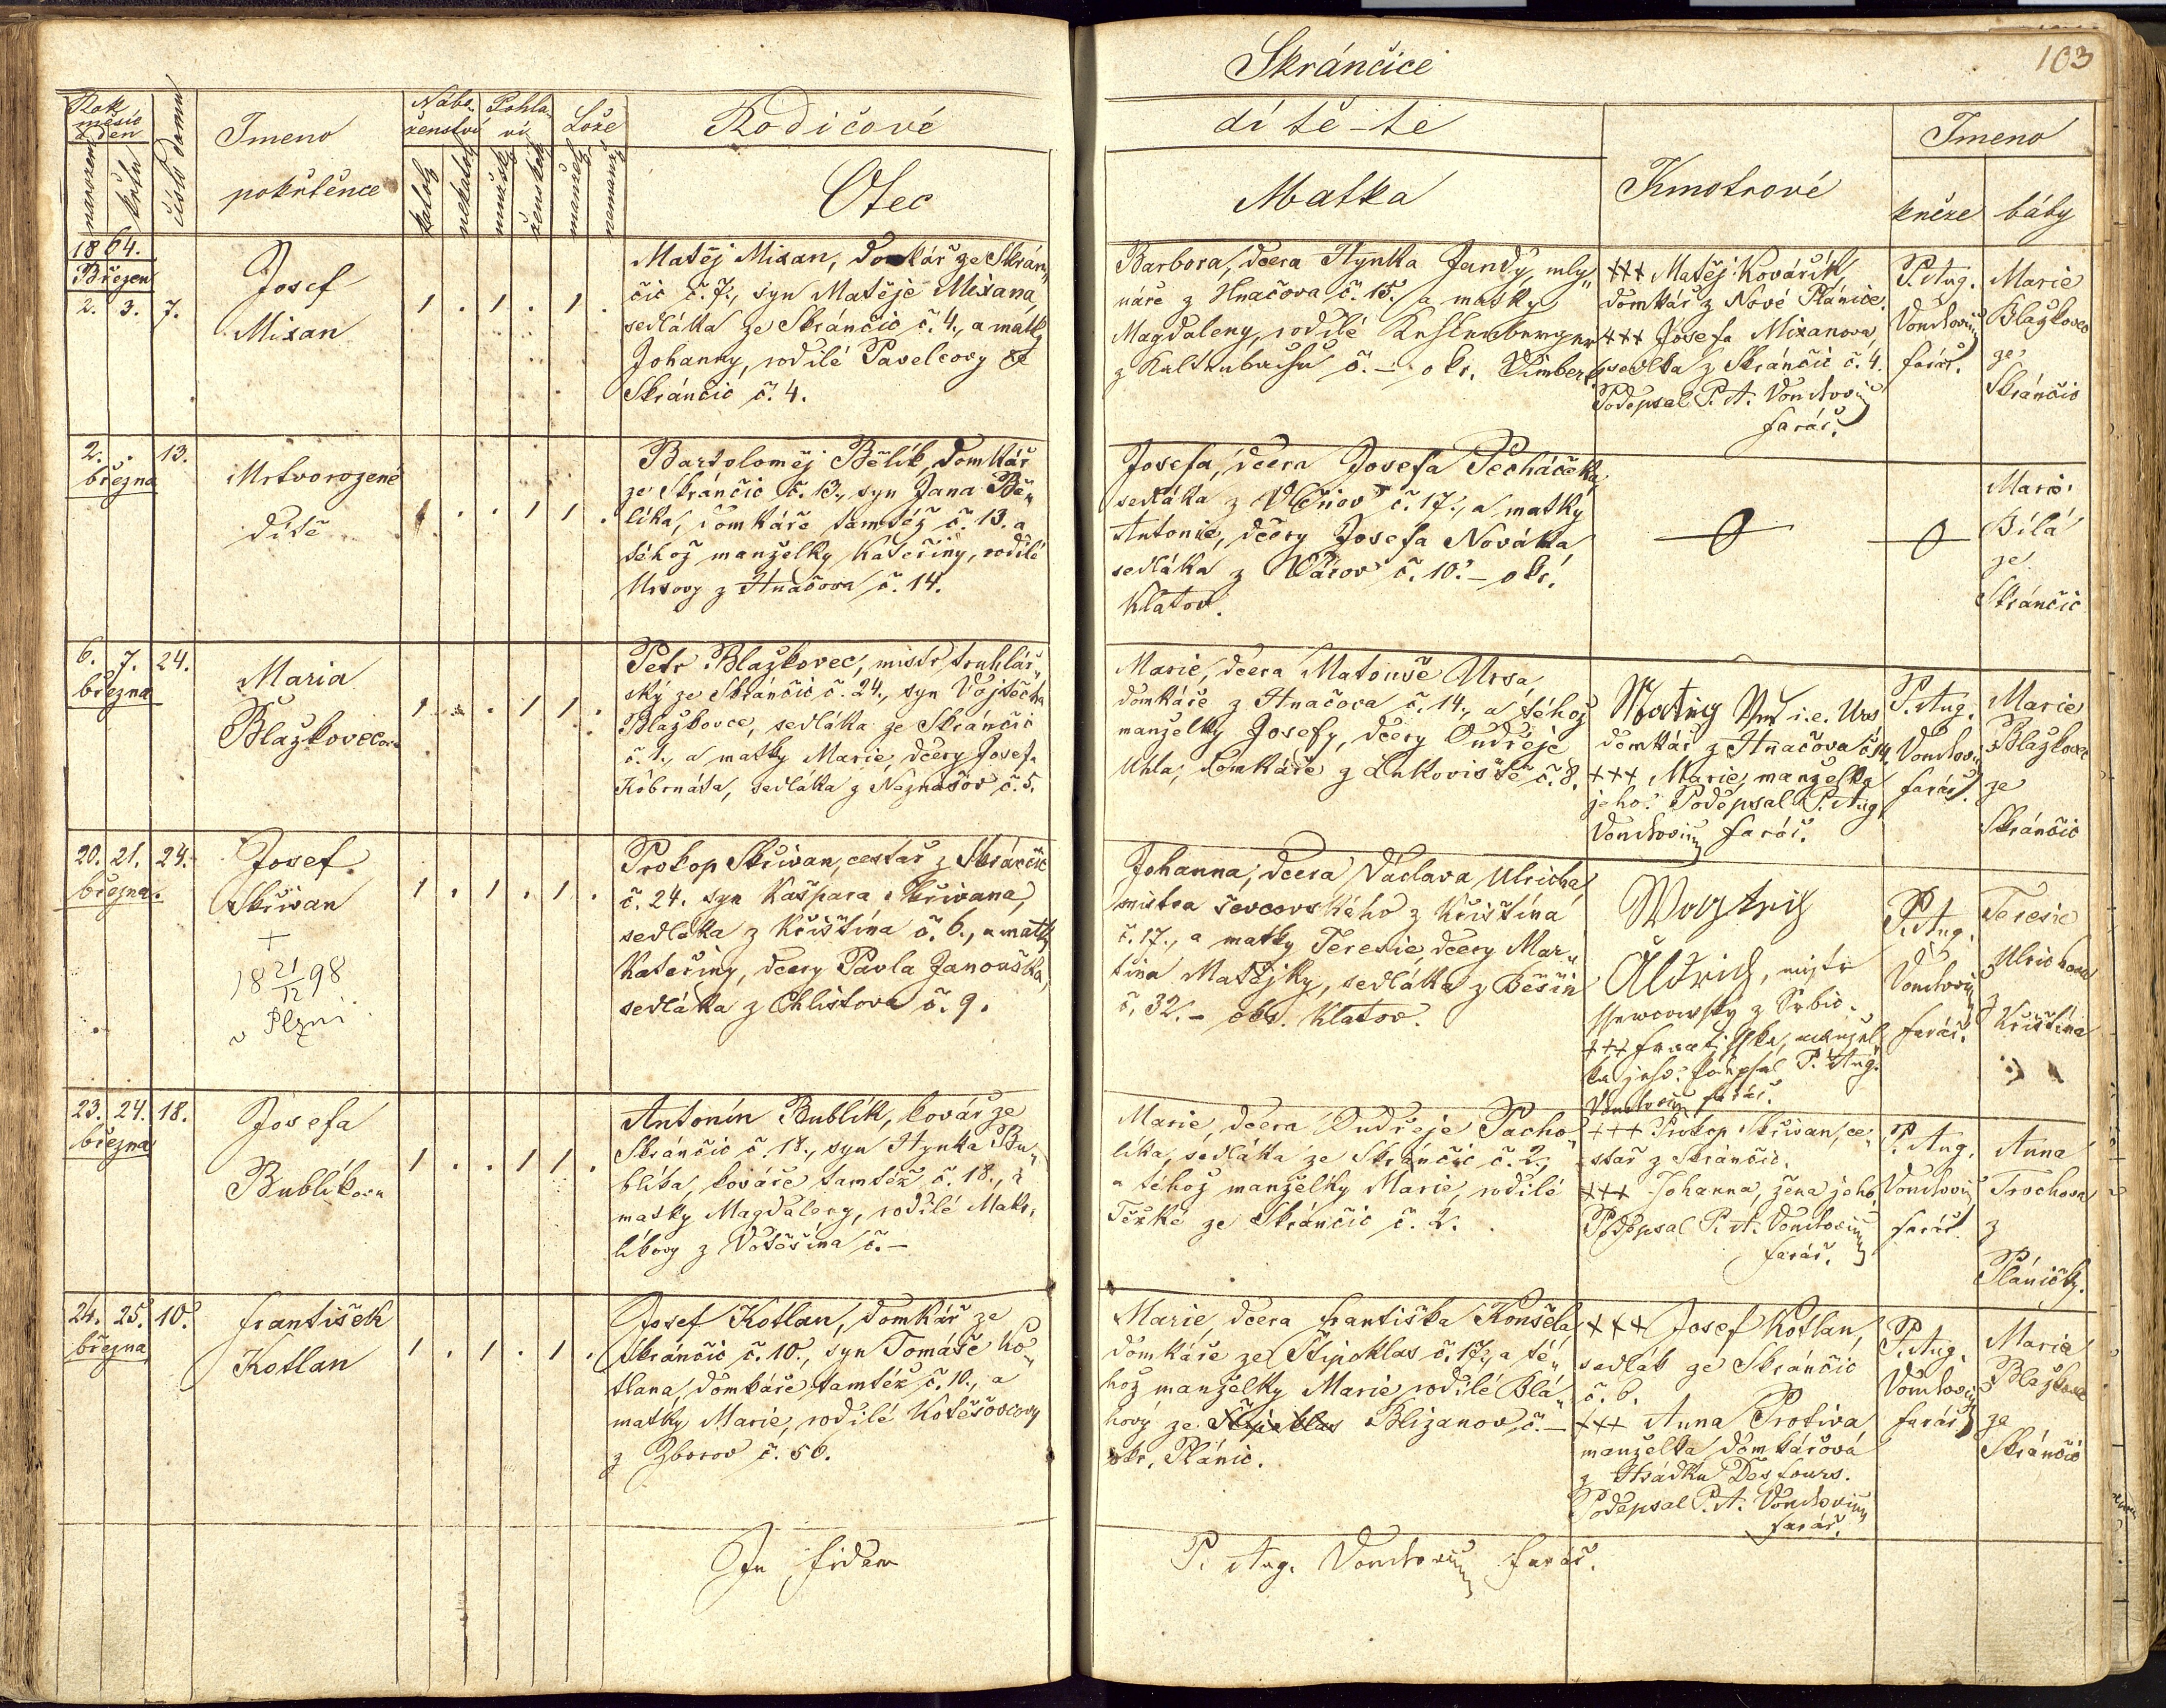 Skránčice
103
Rok
měsíc
a den
narozen
křtu
číslo domu
Jmeno
pokřtěnce
Nábo-
ženství
katol
nekatol
Pohla-
ví
mužsk
žensk
Lože
manžel
nemanž
Rodičové
Otec
dítě-te
Matka
Kmotrové
Jmeno
kněze
báby
1864.
Březen
2. 3. 7.
Josef
Mixan
1 . 1 . 1 .
Matěj Mixan, domkář ze Skrán"
čic č. 7., syn Matěje Mixana
sedláka ze Skránčic č. 4., a matky
Johanny, rodilé Pavelcovy ze
Skránčic č. 4.
Barbora, dcera Hynka Jandy, mly"
náře z Hnačova č. 15. a matky
Magdaleny, rodilé
z č. – okr. Vimberk
+++ Matěj Kovářík,
domkář z Nové Plánice.
+++ Josefa Mixanova,
sedlka z Skránčic č. 4.
Podepsal P. A.
farář.
P. Aug.
farář.
Marie
Blažkovec
ze
Skránčic
2. . 13.
března
Mrtvorozené
dítě
1 . . 1 1 .
Bartoloměj Bělík, domkář
ze Skránčic č. 13., syn Jana Bě"
líka, domkáře tamtéž č. 13. a
téhož manželky Kateřiny, rodilé
Ursovy z Hnačova č. 14.
Josefa, dcera Josefa Pecháčka,
sedláka z č. 17., a matky
Antonie, dcery Josefa Nováka,
sedláka z č. 10. – okr.
Klatov.
Marie
Bílá
ze
Skránčic
6. 7. 24.
března
Maria
Blažkovecova
1 . . 1 1 .
Petr Blažkovec, mistr truhlář"
ský ze Skránčic č. 24., syn Vojtěcha
Blažkovce, sedláka ze Skránčic
č. 1., a matky Marie, dcery Josefa
Kobrnáta, sedláka z Neznašov č. 5.
Marie, dcera Matouše Ursa,
domkáře z Hnačova č. 14., a téhož
manželky Josefy, dcery Ondřeje
Uhla, domkáře z Lukoviště č. 8.
Matieg Urs i.e. Urs
domkář z Hnačova č. 14,
+++ Marie, manželka
jeho. Podepsal P. Aug.
farář.
P. Aug.
farář.
Marie
Blažkovec
ze
Skránčic
20. 21. 24.
března.
Josef
Skřivan
+
18 21/12 98
v Plzni
1 . 1 . 1 .
Prokop Skřivan, cestář z Skránčic
č. 24. syn Kašpara Skřivana,
sedláka z Křištína č. 6., a matky
Kateřiny, dcery Pavla Janouška,
sedláka z Chlistova č. 9.
Johanna, dcera Václava Ulricha,
mistra ševcovského z Křištína
č. 17., a matky Teresie, dcery Mar"
tina Matějky, sedláka z Běšin
č. 32. – okr. Klatov.
Woytěch
Aldrich, mistr
ssewcowský z Srbic.
+++ Františka, manžel"
ka jeho. Podepsal P. Aug.
farář.
P. Aug.
farář.
Teresie
Ulrichova
z
Křištína
23. 24. 18.
března
Josefa
Bublíkova
1 . . 1 1 .
Antonín Bublík, kovář ze
Skránčic č. 18., syn Hynka Bu"
blíka, kováře tamtéž č. 18., a
matky Magdaleny, rodilé Mako"
líkovy z č. –
Marie, dcera Ondřeje Pacho"
líka, sedláka ze Skránčic č. 2.,
a téhož manželky Marie, rodilé
Težké ze Skránčic č. 2.
+++ Prokop Skřivan, ce"
stář z Skránčic.
+++ Johanna, žena jeho,
Podepsal P. A.
farář.
P. Aug.
farář.
Anna
Trochova
z
Pláničky.
24. 25. 10.
března
František
Kotlan
1 . 1 . 1 .
Josef Kotlan, domkář ze
Skránčic č. 10., syn Tomáše Ko"
tlana, domkáře tamtéž č. 10., a
matky Marie, rodilé Kotěšovcovy
z Zborov č. 50.
Marie, dcera Františka Konšela
domkáře ze Štipoklas č. 17., a té"
hož manželky Marie rodilé Blá"
hový ze Štipoklas Blizanov, č. –
okr. Plánic.
+++ Josef Kotlan,
sedlák ze Skránčic
č. 6.
+++ Anna Protiva
manželka domkářová
z Hrádku Desfours.
Podepsal P. A.
farář.
P. Aug.
farář
Marie
Blažkovec
ze
Skránčic
In fidem
P. Aug. farář.